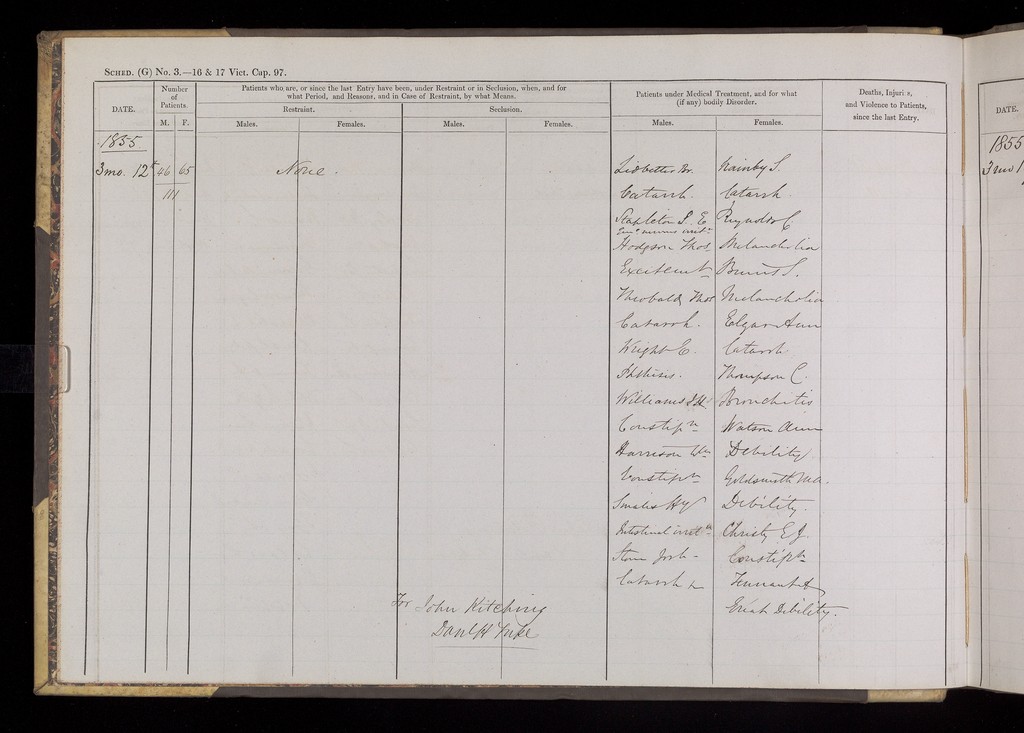 SCHED. (G) No. 3.—16 & 17 Vict. Cap. 97.
DATE.
Number
of
Patients.
M. F.
Patients who are, or since the last Entry have been, under Restraint or in Seclusion, when, and for
what Period, and Reasons, and in Case of Restraint, by what Means.
Restraint.
Seclusion.
Males. Females. Males. Females.
Patients under Medical Treatment, and for what
(if any) bodily Disorder.
Males. Females.
Deaths, Injuri s,
and Violence to Patients,
since the last Entry.
1855
3 mo. 12th 46 65
111
None.
Catarrh.
Stapleton J. E
Hodgson Thos
Excitemt
Theobald Thos
Catarrh.
Wright C.
Phthisis.
Williams
Constipn
Harrison Wm
Constipn
Smales Hy
Intestinal irritn
Stone Josh
Catarrh
Nainby S.
Catarrh
Reynolds C
Melancholia
S.
Melancholia
Edgar Ann
Catarrh
Thompson C.
Bronchitis
Watson Ann
Debility
Goldsmith
Debility.
Christy E J.
Constipn
Tennant A
Debility.
For John Kitching
Danl H Tuke
DATE.
1855
3 mo 1